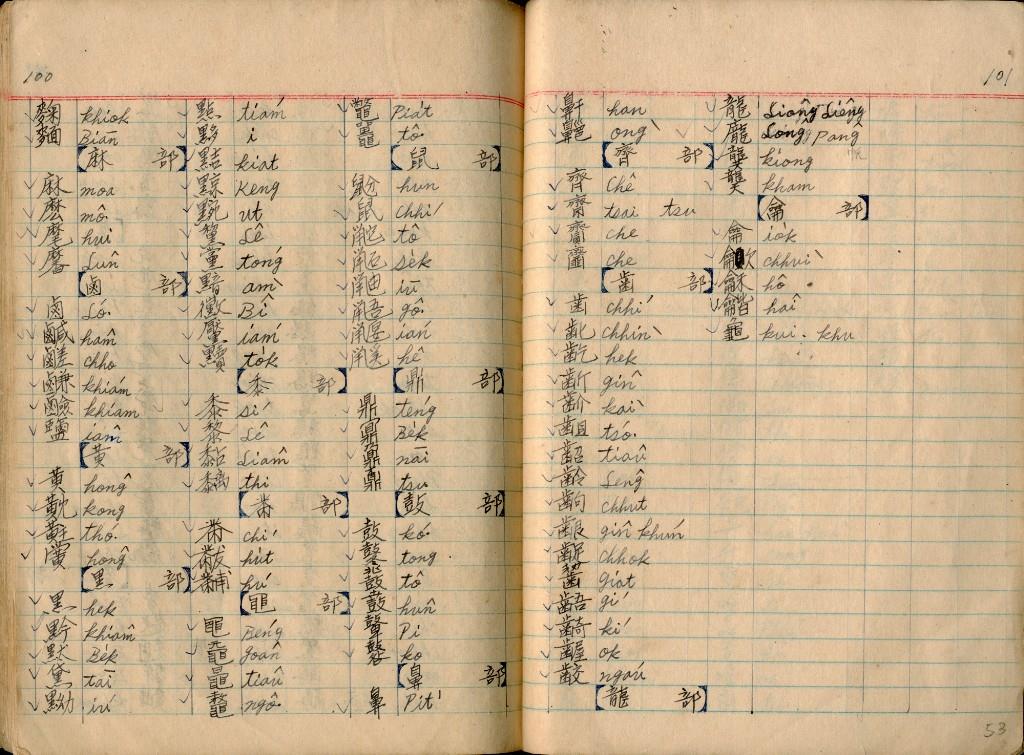 100
麴 khiok
麵 Biān
麻 部
麻 moa
麼 mô.
麾 hui
麿 Lun̂
鹵 部
鹵 Ló.
鹹 ham̂
鹺 chho
鹻 khiám
鹼 khiam
鹽 iam̂
黃 部
黃 honĝ
黆 kong
黈 thó.
黌 honĝ
黑 部
黑 hek
黔 khiam̂
默 Be̍k
黛 tāi
黝 iú
點 tiám
黟 i
黠 kiat
黥 Keng
黦 ut
黧 Lê
tóng
黯 am̀
黴 Bî
黶 iam̂
黷 to̍k
黍 部
黍 sí
黎 Lê
黏 Liam̂
黐 thi
黹 部
黹 chí
黻 hut
黼 hú
黽 部
黽 Béng
黿 goân
鼂 tiaû
鼇 ngô.
鼈 Piat
鼉 tô.
鼠 部
鼢 hun
鼠 chhí
鼧 tô
se̍k
鼬 iū
鼯 gô.
鼴 ián
鼷 hê
鼎 部
鼎 téng
鼏 Be̍k
鼐 nāi
鼒 tsu
鼓 部
鼓 kó.
鼕 tong
鼗 tô
鼖 hun̂
鼙 Pi
鼛 ko
鼻 部
鼻 Pit
101
鼾 han
齆 òng
齊 部
齊 Chê
齋 tsai tsu
che
che
齒 部
齒 chhí
齔 chhìn
齕 hek
齗 gin̂
齘 kaì
齟 tsó.
齠 tiaû
齡 Lenĝ
齣 chhut
齦 gin̂ khún
齪 chhok
齧 giat
齬 gí
齮 kí
齷 ok
齩 ngaú
龍 部
龍 Lionĝ Lienĝ
龐 Lonĝ Panĝ
龔 kiong
龕 kham
龠 部
龠 iok
龡 chhuì
龢 hô
龤 hai̍
龜 kui. khu
53